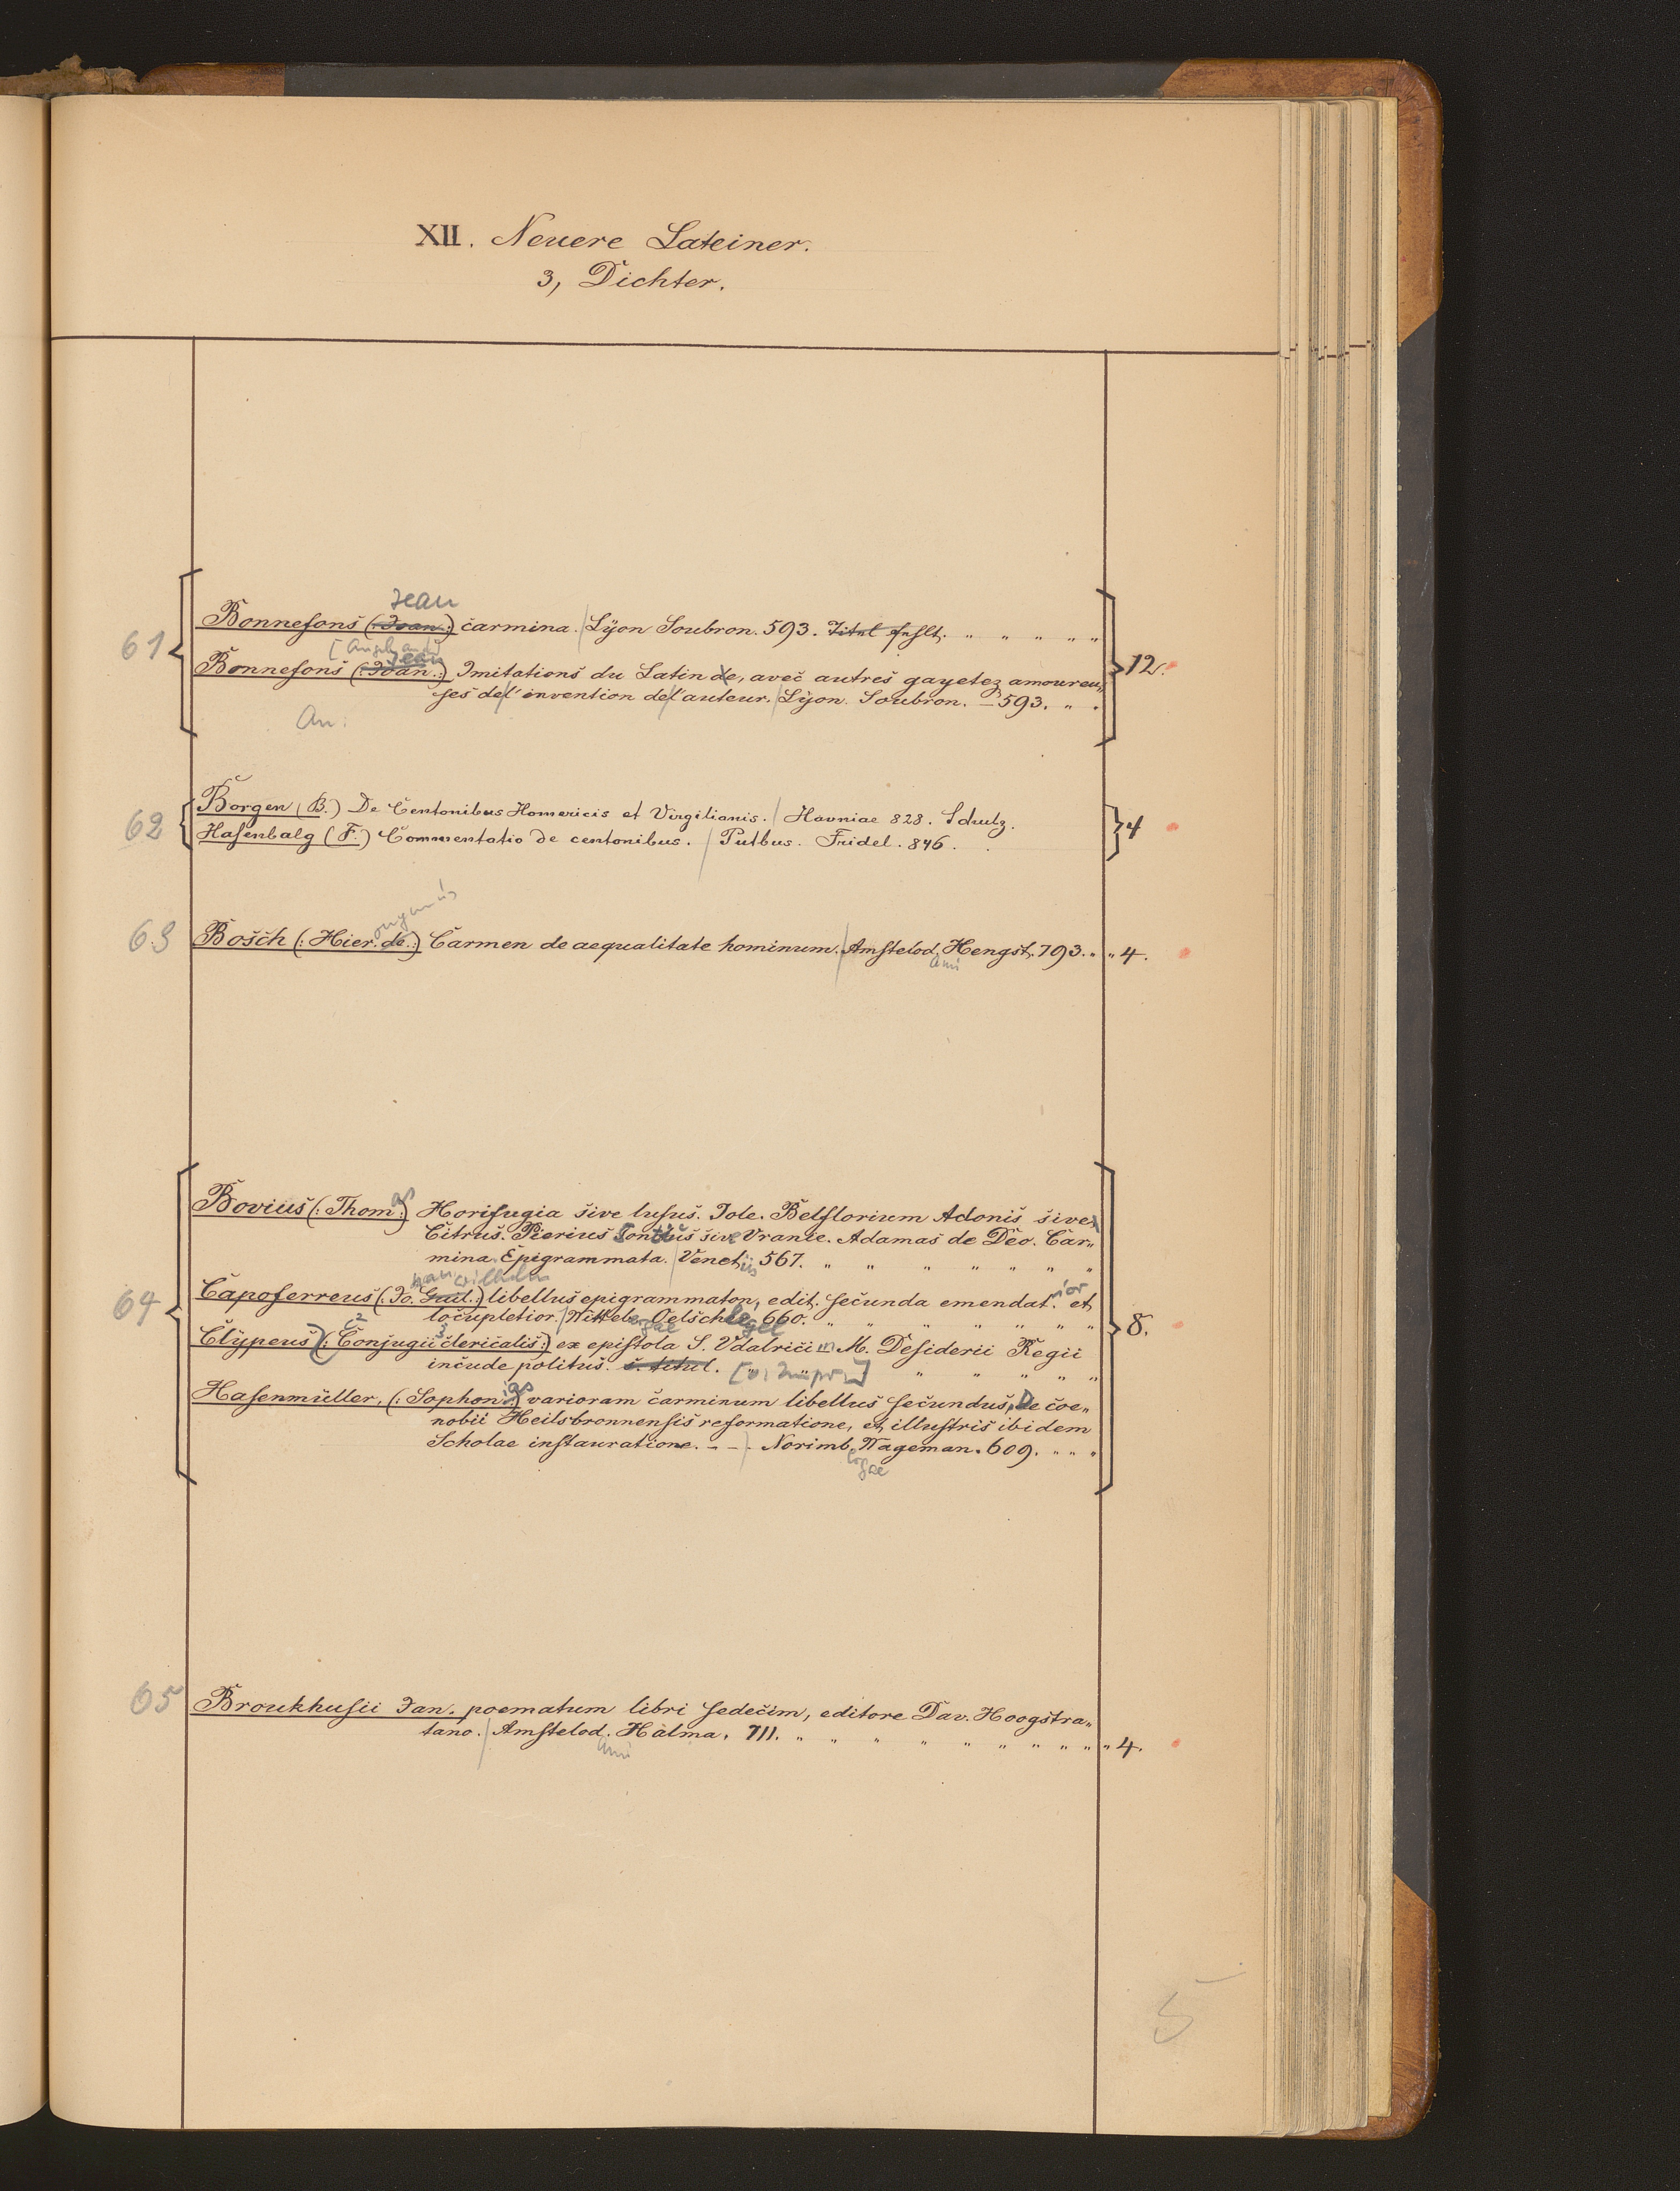 XII. Neuere Lateiner.
3, Dichter.
Jean
61 Bonnefons (: Joan :) carmina. / Lyon Soubron. 593. Titul fehlt. " " " " "
Jean
Bonnefons (: Joan. :) Imitations du Latin de, avec autres gayetez amoureu„ 12.
ses de l'invention de l'auteur. / Lyon. Soubron. — 593. " "
An.
62 Borgen (B.) De Centonibus Homericis et Virgilianis. / Havniae 828. Schulz. 4
Hasenbalg (F.) Commentatio de centonibus. / Putbus. Fridel. 846.
onymus
63 Bosch (: Hier. de. :) Carmen de aequalitate hominum. / Amstelod. Hengst. 793. " " 4.
ami
as
Bovius (: Thom :) Horifugia sive lusus. Jole. Belflorium Adonis sive
Citrus. Pierius Pontius sive Vranie. Adamas de Deo. Car„
mina. Epigrammata. / Venetiis 567. " " " " " " "
han Wilhelm ior
64 Capoferreus (: Jo. Guil. :) libellus epigrammaton, edit. secunda emendat. et
locupletior. / Witteb ergae Oelschlegel 660. " " " " " " " 8.
2 3
Clypeus (: Conjugii clericalis :) ex epistola S. Vdalrici M. Desiderii Regii
incude politus. s. titul. " " " " "
as
Hasenmüller, (: Sophon :) varioram carminum libellus secundus, De coe„
nobii Heilsbronnensis reformatione, et illustris ibidem
Scholae instauratione. – – / Norimb. Wageman. 609. " " "
ergae
65 Broukhusii Jan. poematum libri sedecim, editore Dav. Hoogstra„
tano. / Amstelod. Halma. 711. " " " " " " " " " " 4.
ami
5